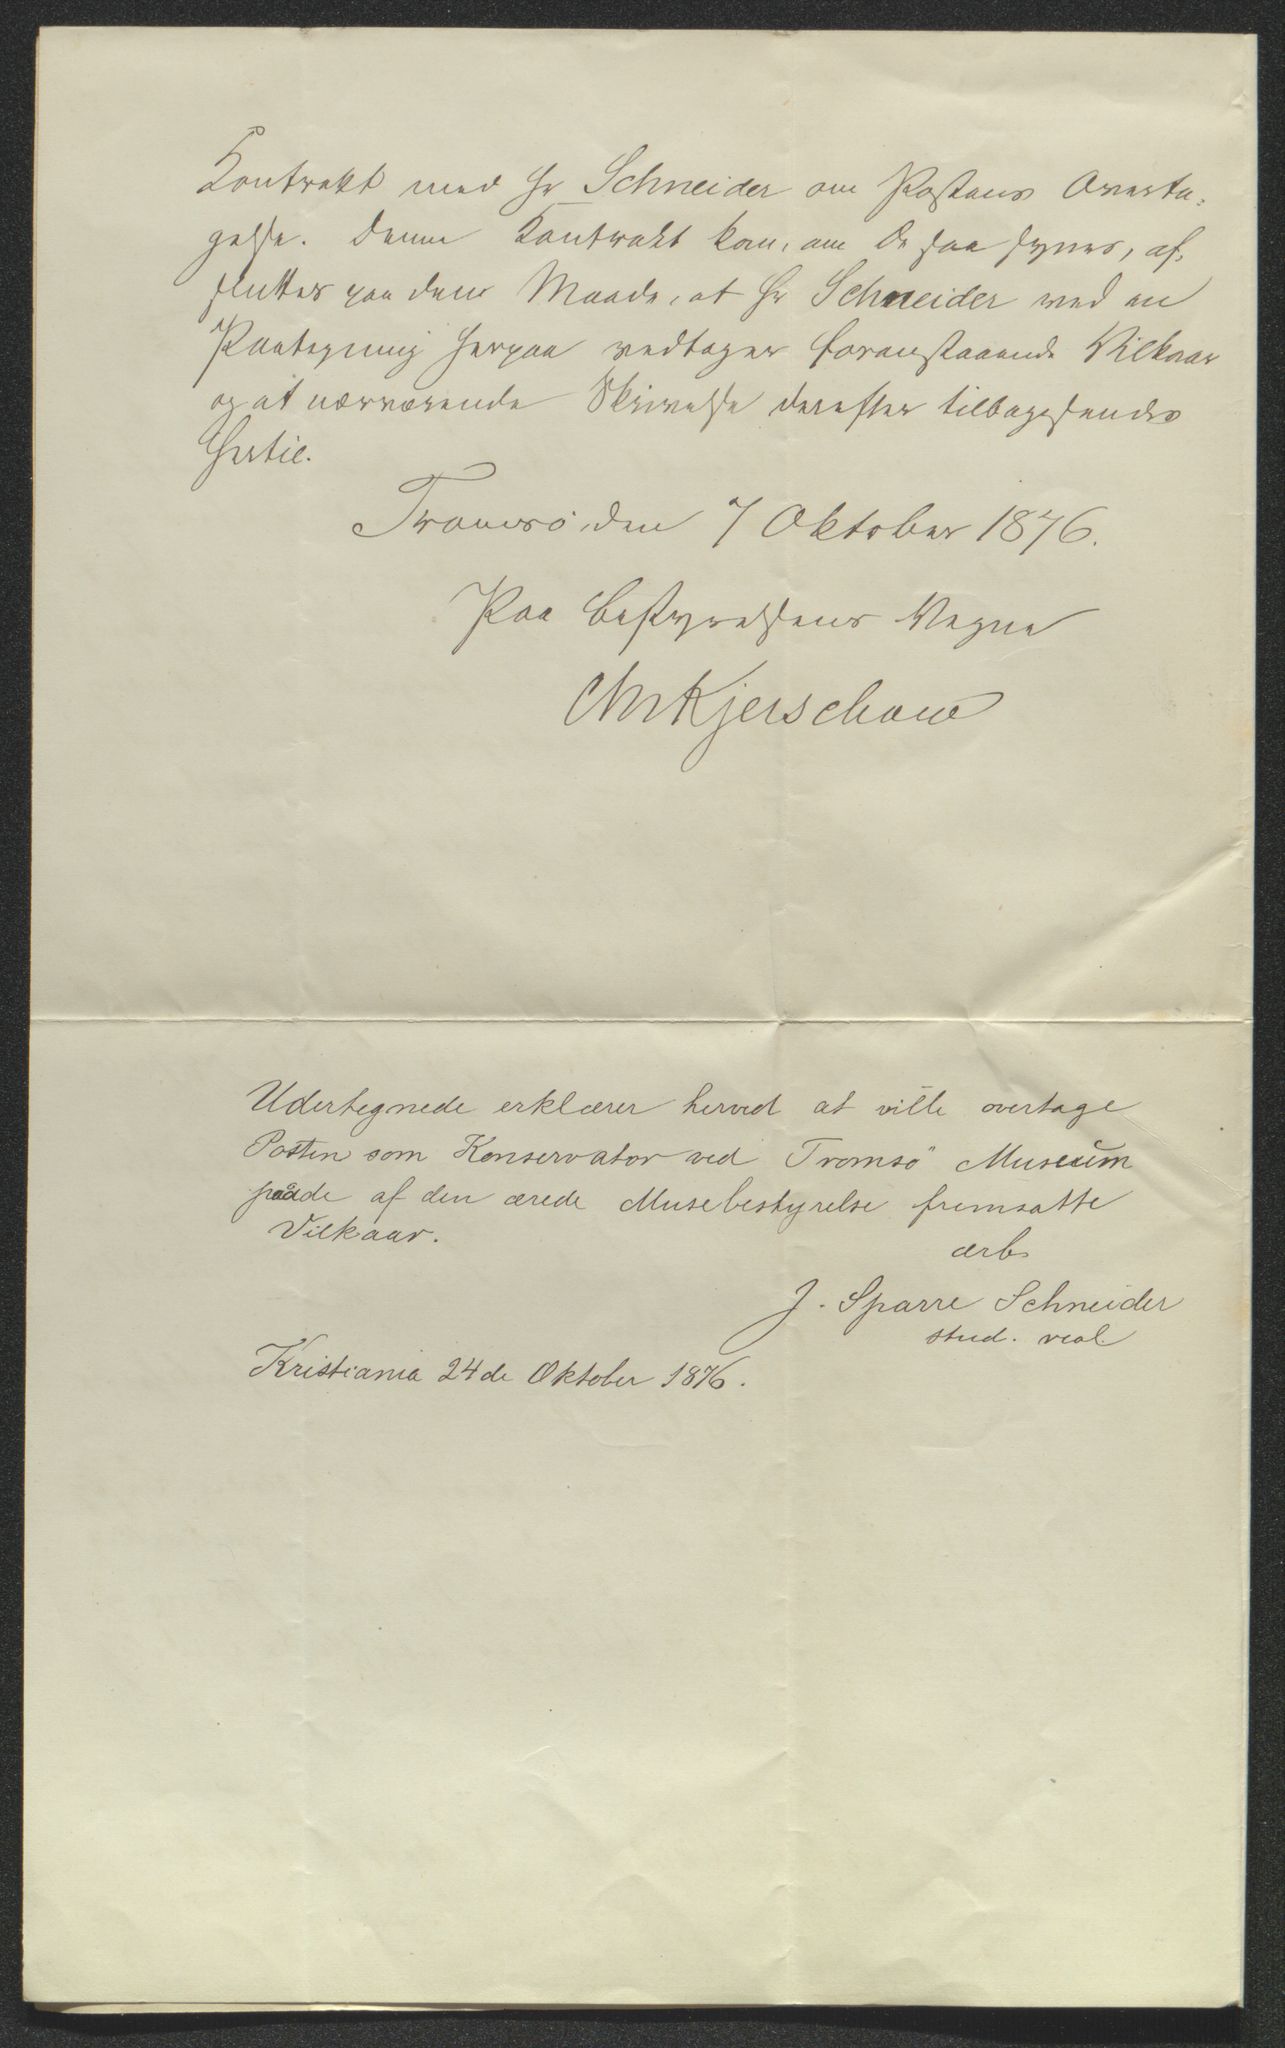 Kontrakt med Hr Schneider om Postens Overta-
gelse. Denne Kontrakt kan, om De saa synes, af-
sluttes paa den Maade, at Hr Schneider ved en
Paategning herpaa vedtager foranstaaende Vilkaar
og at nærværende Skrivelse derefter tilbagesendes
hertil.
Tromsö den 7 Oktober 1876.
Paa Bestyrelsens Vegne
Chr Kjerschow
Udertegnede erklærer herved at ville overtage
Posten som Konservator ved Tromsö Museum
paa de af den ærede Musebestyrelse fremsatte
Vilkaar.
ærb
J. Sparre Schneider
stud. real.
Kristiania 24de Oktober 1876.